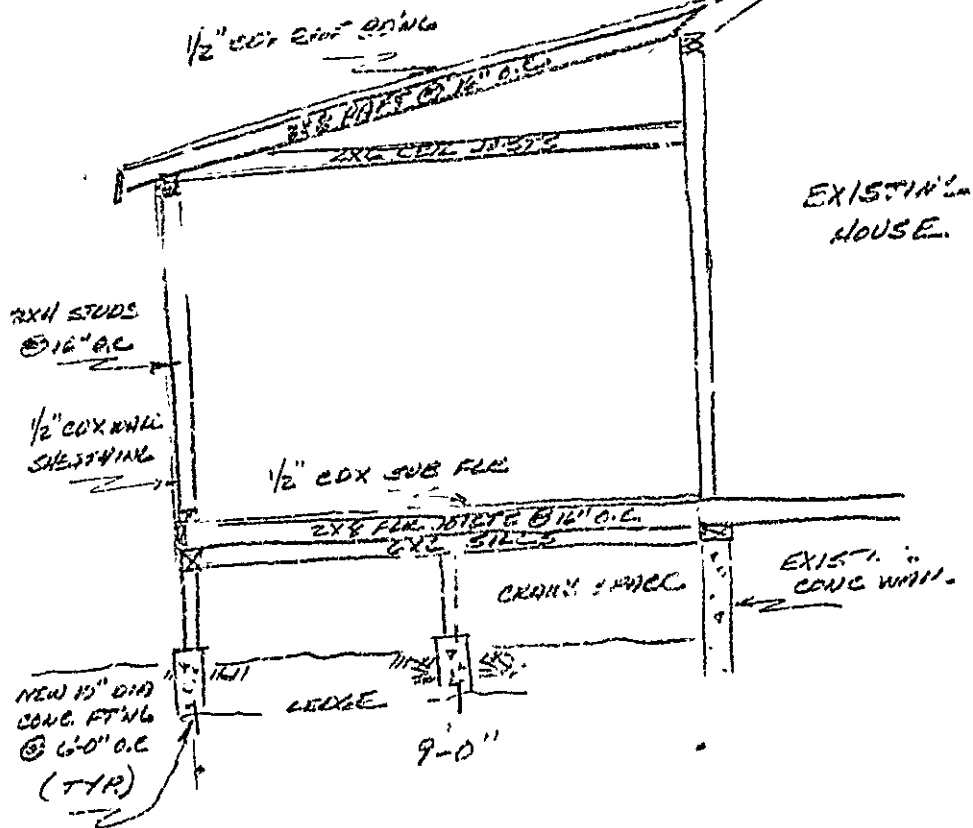 1/2" CDX
RAFT @ 16" O.C.
2X6 CEIL JOISTS
EXISTING
HOUSE.
2X4 STUDS
@ 16" O.C
1/2" CDX WALL
SHEETHING
1/2" CDX SUB FLR
2X8 FLR. JOISTS @ 16" O.C.
SILLS
CRAWL SPACE
EXIST.
CONC WALL.
NEW 10" DIA
CONC. FT'NG
@ 6'-0" O.C
(TYP.)
LEDGE
9'-0"